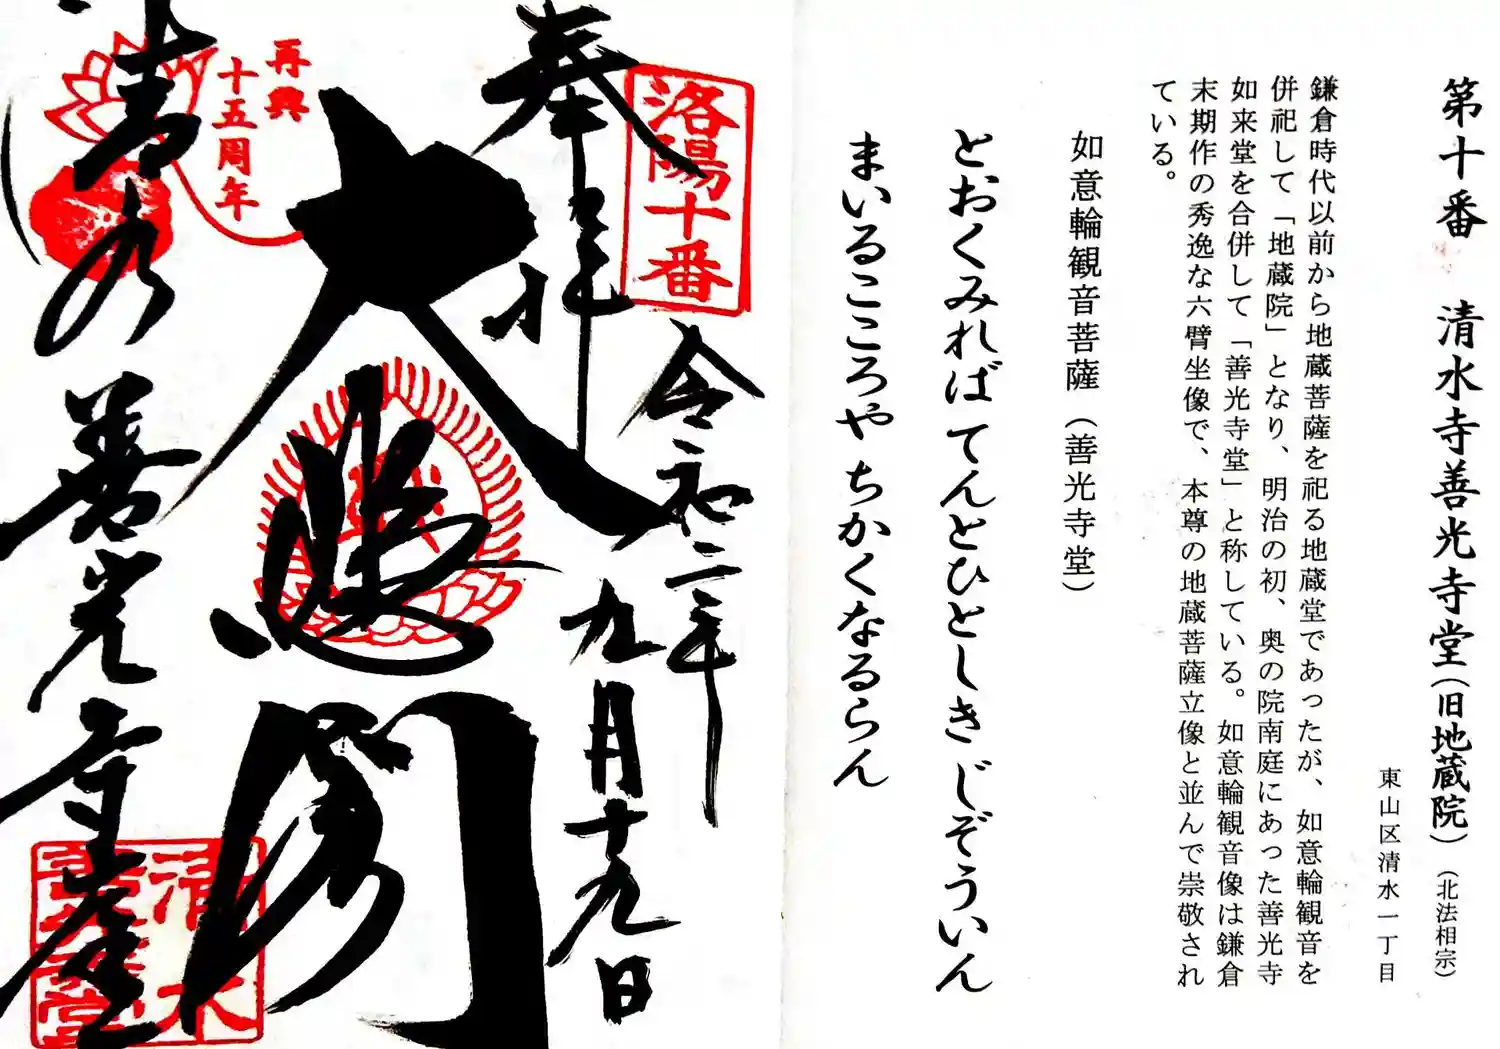 第十番 清水寺善光寺堂（旧地蔵院）（北法相宗）
東山区清水一丁目
鎌倉時代以前から地蔵菩薩を祀る地蔵堂であったが、如意輪観音を
併祀して「地蔵院」となり、明治の初、奥の院南庭にあった善光寺
如来堂を合併して「善光寺堂」と称している。如意輪観音像は鎌倉
末期作の秀逸な六臂坐像で、本尊の地蔵菩薩立像と並んで崇敬され
ている。
如意輪観音菩薩（善光寺堂）
とおくみれば てんとひとしき じぞういん
まいるこころや ちかくなるらん
洛陽十番
奉拝
令和二年
九月十九日
大悲閣
再興
十五周年
清水
善光寺堂
清水
善光寺堂